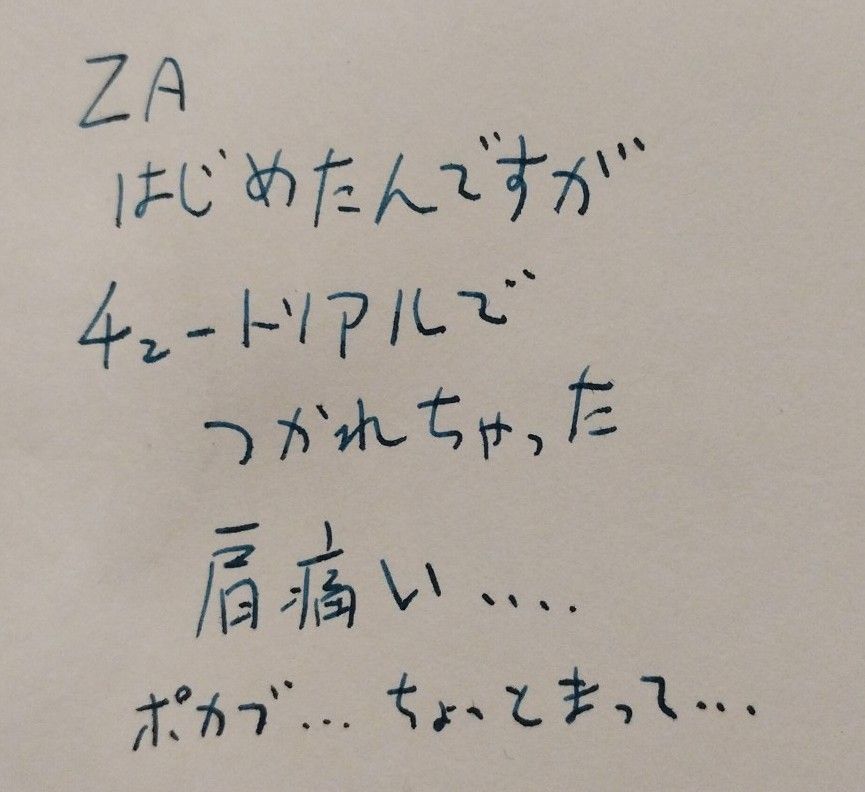 ZA
はじめたんですが
チュートリアルで
つかれちゃった
肩痛い....
ポカブ...ちょっとまって...